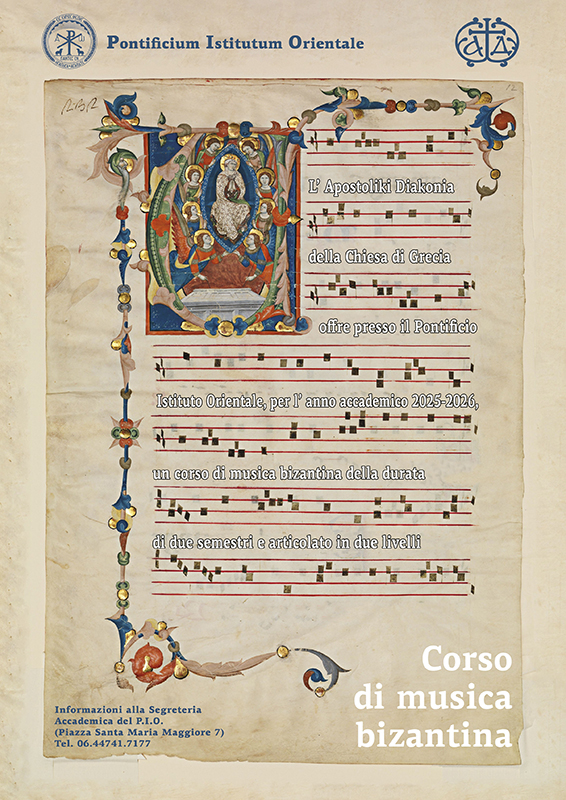 Pontificium Istitutum Orientale
L' Apostoliki Diakonia
della Chiesa di Grecia
offre presso il Pontificio
Istituto Orientale, per l' anno accademico 2025-2026,
un corso di musica bizantina della durata
di due semestri e articolato in due livelli
Corso
di musica
bizantina
Informazioni alla Segreteria
Accademica del P.I.O.
(Piazza Santa Maria Maggiore 7)
Tel. 06.44741.7177